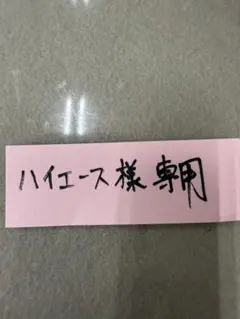 ハイエース様専用